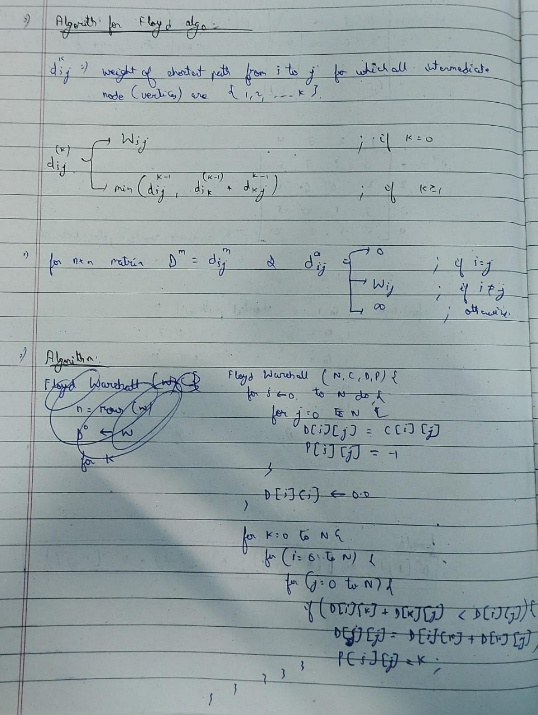 Algorith for Floyd algo
d^k ij => weight of shortest path from i to j for which all intermediate
node (vertices) are {1, 2, .... k}.
d^(k) ij → Wij ; if k=0
→ min (dij^k-1, dik^(k-1) + dkj^k-1) ; if k≥1
for n*n matrix D^n = dij^n & dij^0 → 0 ; if i=j
→ Wij ; if i≠j
→ ∞ ; otherwise.
Algorithm:
Floyd Warshall (w) {
n = row (w)
D^0 ← W
for k
Floyd Warshall (N, C, D, P) {
for i ←0 to N do {
for j=0 to N {
D[i][j] = C[i][j]
P[i][j] = -1
}
D[i][i] ← 0.0
}
for k=0 to N {
for (i=0 to N) {
for (j=0 to N) {
if (D[i][k] + D[k][j] < D[i][j]) {
D[i][j] = D[i][k] + D[k][j]
P[i][j] = k ;
} } } } }